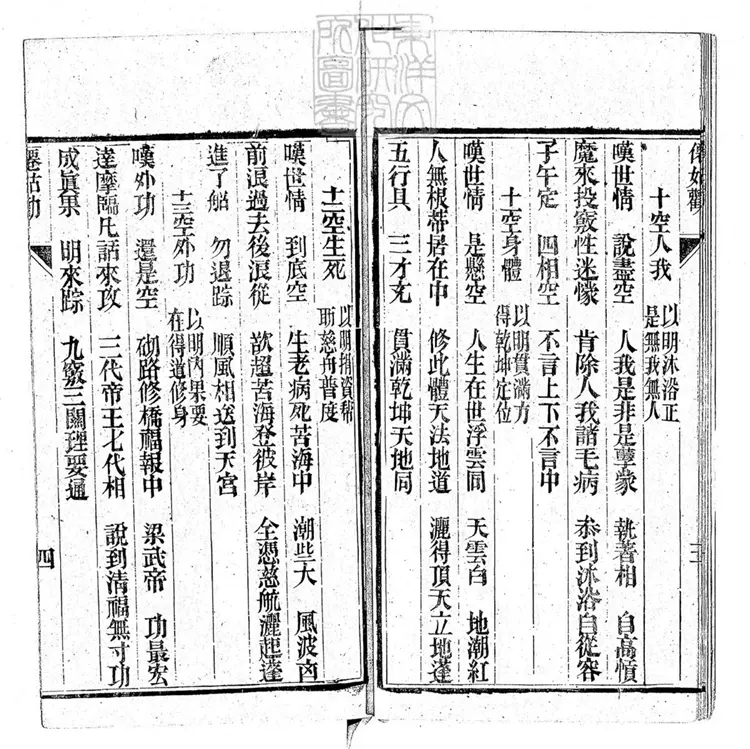 十空人我
以明沐浴正
是無我無人
嘆世情 說盡空 人我是非是孽蒙 執著相 自高慎
魔來投竅性迷懞 肯除人我諸毛病 叅到沐浴自從容
子午定 四相空 不言上下不言中
十空身體
以明貫滿方
得乾坤定位
嘆世情 是懸空 人生在世浮雲同 天雲白 地潮紅
人無根蒂居在中 修此體天法地道 灑得頂天立地蓬
五行具 三才充 貫滿乾坤天地同
十二空生死
以明捐資幫
助慈舟普度
嘆世情 到底空 生老病死苦海中 潮些大 風波凶
前浪過去後浪從 欲超苦海登彼岸 全憑慈航灑起達
進了船 勿退踪 順風相送到天宮
十三空外功
以明內果要
在得道修身
嘆外功 還是空 砌路修橋福報中 梁武帝 功最宏
達摩臨凡話來攻 三代帝王七代相 說到清福無寸功
成眞果 明來踪 九竅三關理要通
四